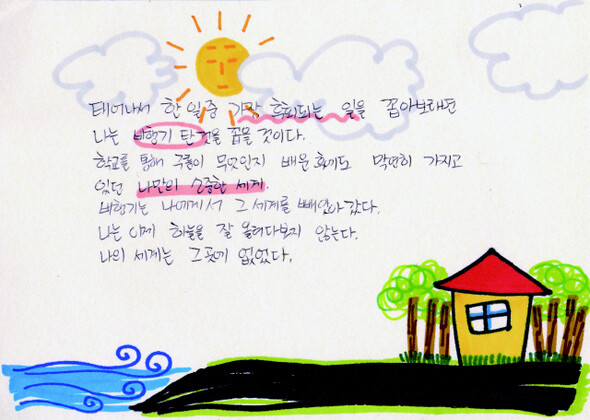 태어나서 한 일중 가장 후회되는 일을 꼽아보라면
나는 비행기 탄 것을 꼽을 것이다.
학교를 통해 구름이 무엇인지 배운 후까지도 막연히 가지고
있던 나만의 소중한 세계.
비행기는 나에게서 그 세계를 빼앗아 갔다.
나는 이제 하늘을 잘 올려다보지 않는다.
나의 세계는 그곳에 없었다.